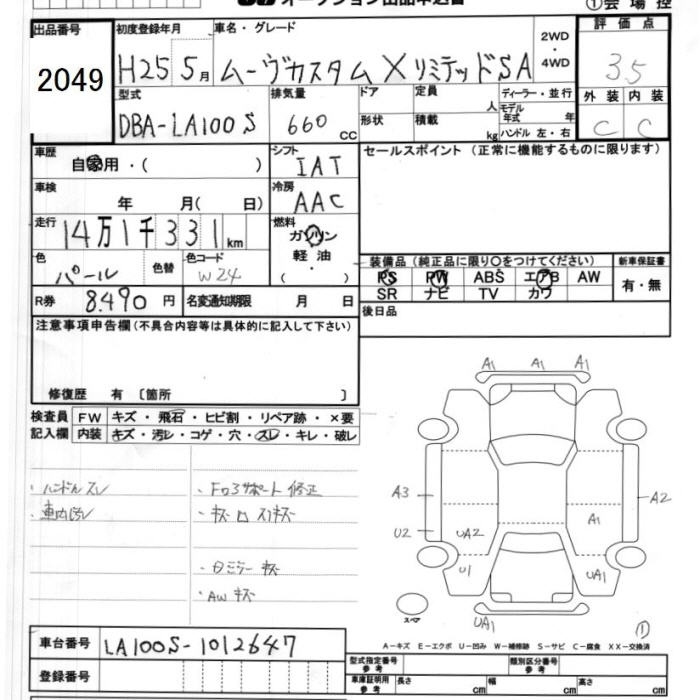 オークション出品申込書
①会場控
出品番号 2049
初度登録年月 H25 5月
車名・グレード ムーヴカスタム X リミテッド SA
2WD・4WD
評価点 3.5
型式 DBA-LA100S
排気量 660 cc
ドア 形状
定員 人
積載 kg
ディーラー・並行
モデル年式 年式
ハンドル 左・右
外装 C 内装 C
車歴 自家用・( )
シフト IAT
セールスポイント (正常に機能するものに限ります)
車検 年 月( 日)
冷房 AAC
走行 14万1千331km
燃料 ガソリン 軽油 ・ ( )
色 パール 色替 色コード W24
装備品 (純正品に限り○をつけてください) 新車保証書
PS PW ABS エアB AW 有・無
SR ナビ TV カワ
R券 8,490円 名変通知期限 月 日
後日品
注意事項申告欄(不具合内容等は具体的に記入して下さい)
修復歴 有 〔箇所 〕
検査員 FW キズ・飛石・ヒビ割・リペア跡・×要
記入欄 内装 キズ・汚レ・コゲ・穴・スレ・キレ・破レ
・ハンドルスレ
・車内汚レ
・Fロアサポート修正
・キズ
・Dミラーキズ
・AWキズ
A1 A1 A1
A3 A2
U2 UA2 A1
U1 UA1
スペア UA1 ①
A-キズ E-エクボ U-凹み W-補修跡 S-サビ C-腐食 XX-交換済
車台番号 LA100S-1012647
登録番号
型式指定番号 参考 類別区分番号 参考
車庫証明用 参考 長さ cm 幅 cm 高さ cm